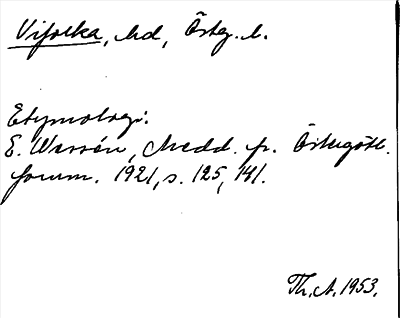 Vifolka, hd, Östg. l.
Etymologi:
E. Wessén, Medd. fr. Östergötl.
fornm. 1921, s. 125, 141.
Th. A. 1953.